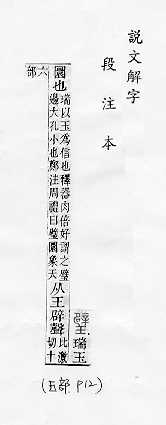 說文解字
段注本
璧瑞玉
圜也
瑞以玉為信也釋器肉倍好謂之璧
邊大孔小也鄭注周禮曰璧圜象天
从王辟聲
比激
切十
六
部
(玉部 P12)